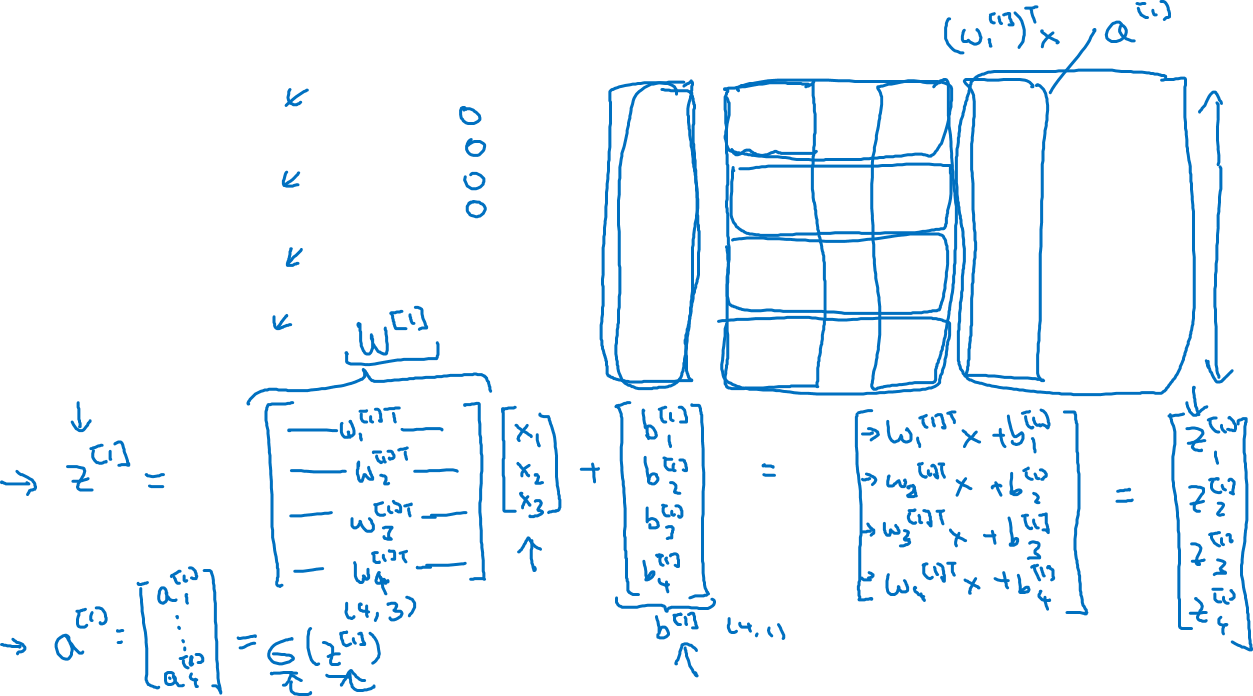 (w₁^[1])ᵀx a^[1]
W^[1]
z^[1] = [w₁^[1]T w₂^[1]T w₃^[1]T w₄^[1]T] [x₁ x₂ x₃] + [b₁^[1] b₂^[1] b₃^[1] b₄^[1]] = [→w₁^[1]T x + b₁^[1] →w₂^[1]T x + b₂^[1] →w₃^[1]T x + b₃^[1] →w₄^[1]T x + b₄^[1]] = [z₁^[1] z₂^[1] z₃^[1] z₄^[1]]
(4,3)
b^[1] (4,1)
→ a^[1] = [a₁^[1] ⋮ a₄^[1]] = σ(z^[1])